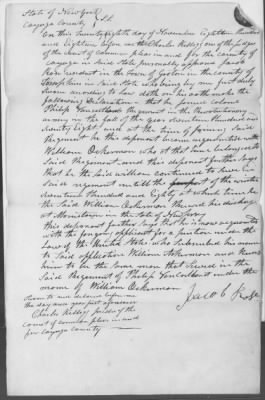 State of New York
Cayuga County } S.S.
On this twenty eighth day of November Eighteen hundred
and Eighteen before me Charles Kellogg one of the judges
of the court of common pleas in and for the county of
Cayuga in said State personally appeared Jacob
resident in the town of Groton in the county of
Tompkins in said State who being by me first duly
sworn according to law doth on his oath make the
following Declaration that he joined Colonel
Philip Vancortlandt Regiment in the Revolutionary
army in the fall of the year seventeen hundred and
seventy eight, and at the time of joining said
Regiment he this deponent became acquainted with
William Ockerman who at that time belonged to
said Regiment, and this deponent further says
that he the said William continued to serve in
said regiment until the of the winter
seventeen hundred and Eighty at which time he
the said William Ockerman Received his discharge
at Morristown in the State of New Jersey
this deponent further says that he is now acquainted
with the person applicant for a pension under the
Law of the United States who subscribed his name
to said application William Ockerman and knows
him to be the same man that served in the
said Regiment of Philip Vancortlandt under the
name of William Ockerman
Sworn to and declared before me
the day and year first aforesaid
Charles Kellogg judge of the
court of common pleas in and
for Cayuga County
Jacob